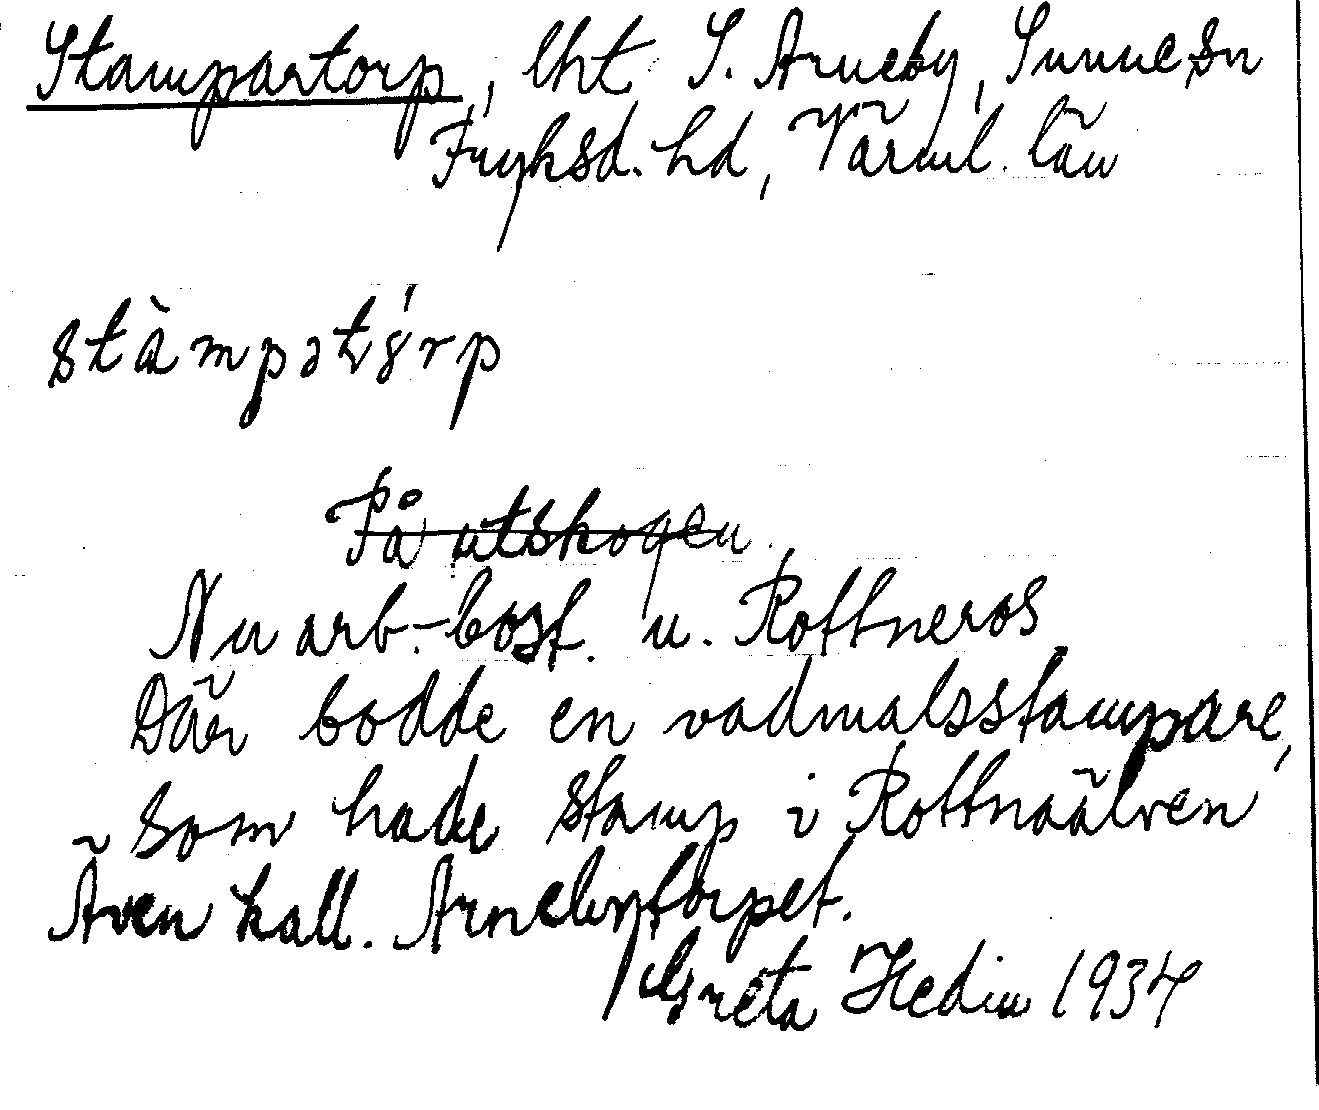 Stampartorp, lht S. Arneby, Sunne sn
Fryksd. hd, Värml. län
stàmpatórp
På utskogen
Nu arb.-bost. u. Rottneros
Där bodde en vadmalsstampare,
som hade stamp i Rottnaälven
Även kall. Arnebytorpet.
Greta Hedin 1934